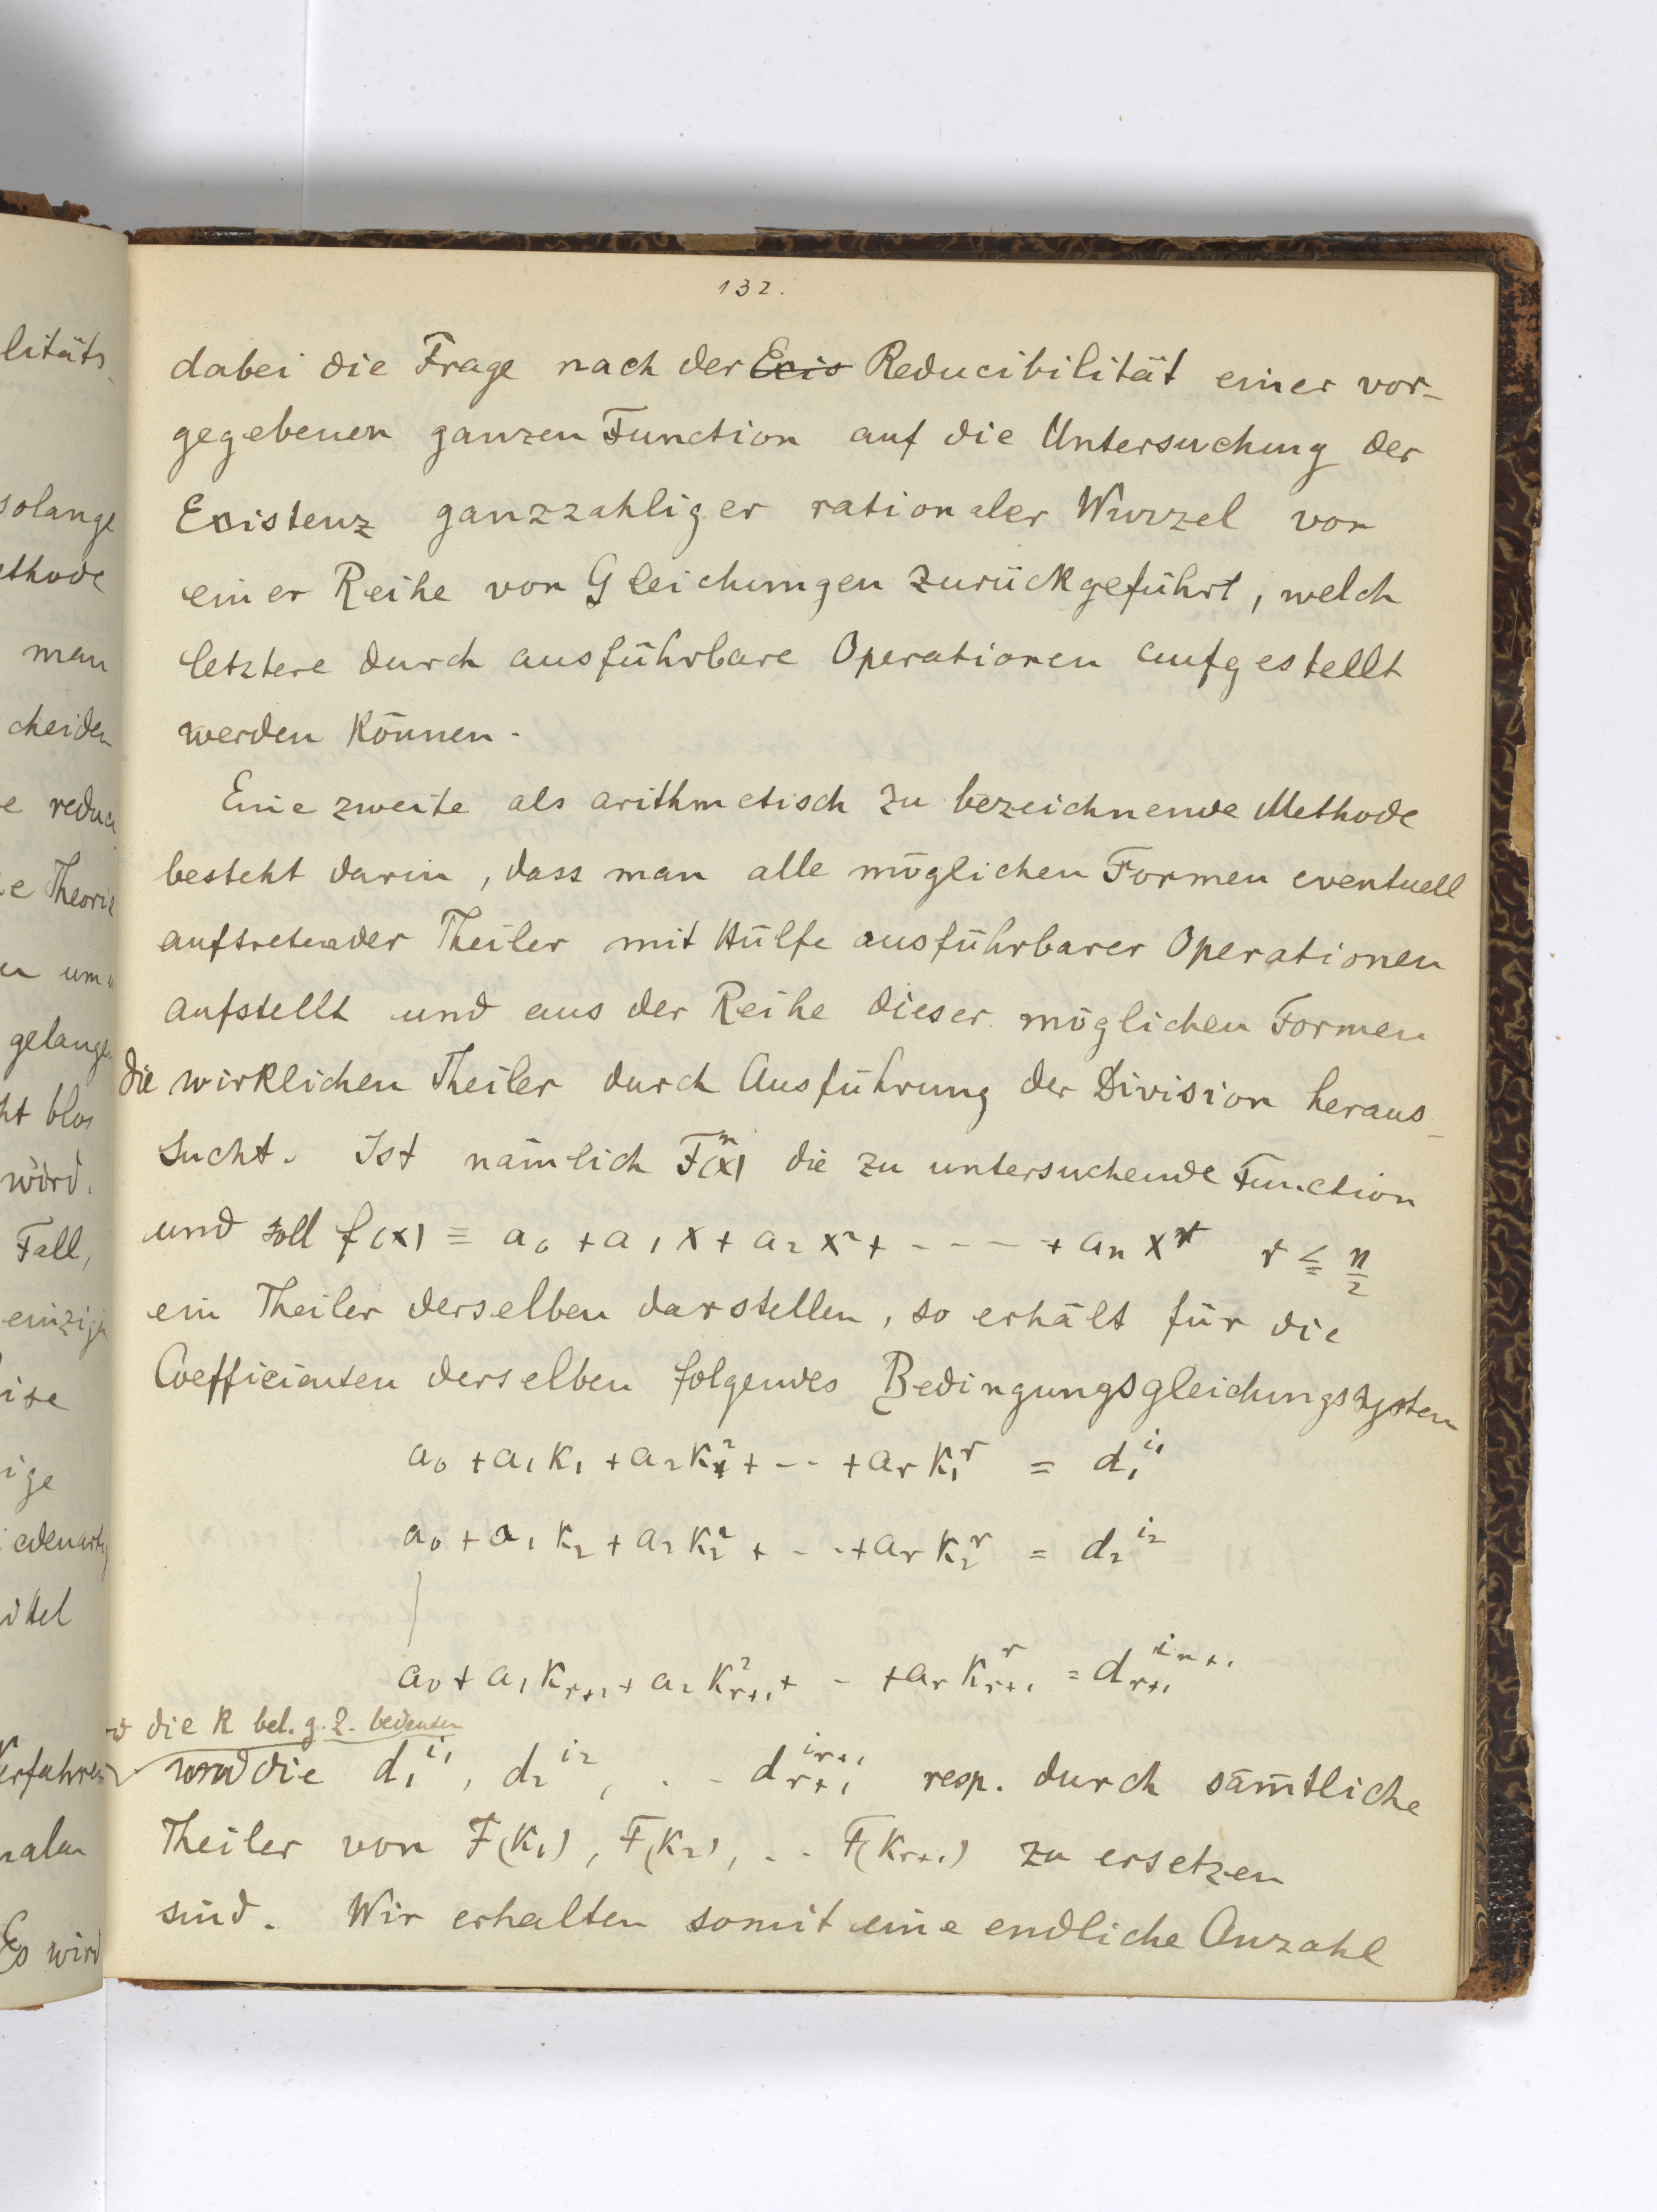 132.
dabei die Frage nach der ~~Exis~~ Reducibilität einer vor-
gegebenen ganzen Function auf die Untersuchung der
Existenz ganzzahliger rationaler Wurzel von
einer Reihe von Gleichungen zurückgeführt, welch
letztere durch ausführbare Operationen aufgestellt
werden können.
Eine zweite als arithmetisch zu bezeichnende Methode
besteht darin, dass man alle möglichen Formen eventuell
auftretender Theiler mit Hülfe ausführbarer Operationen
aufstellt und aus der Reihe dieser möglichen Formen
die wirklichen Theiler durch Ausführung der Division heraus-
sucht. Ist nämlich F^n(x) die zu untersuchende Function
und soll f(x) = a_0 + a_1 x + a_2 x^2 + - - - - + a_n x^r r ≦ n/2
ein Theiler derselben darstellen, so erhält für die
Coefficienten derselben folgendes Bedingungsgleichungssystem
a_0 + a_1 k_1 + a_2 k_1^2 + - - + a_r k_1^r = d_1^{i_1}
a_0 + a_1 k_2 + a_2 k_2^2 + - - + a_r k_2^r = d_2^{i_2}
a_0 + a_1 k_{r+1} + a_2 k_{r+1}^2 + - + a_r k_{r+1}^r = d_{r+1}^{i_{n+1}}
die k bel. g. Z. bedeuten
und die d_1^{i_1}, d_2^{i_2}, . - d_{r+1}^{i_{r+1}} resp. durch sämtliche
Theiler von F(k_1), F(k_2), . . F(k_{r+1}) zu ersetzen
sind. Wir erhalten somit eine endliche Anzahl
litäts
solange
ethode
man
cheiden
e reduci
e Theorie
um
gelange
ht blos
würd.
Fall,
einzige
ise
ige
ittel
Verfahren
Es wird